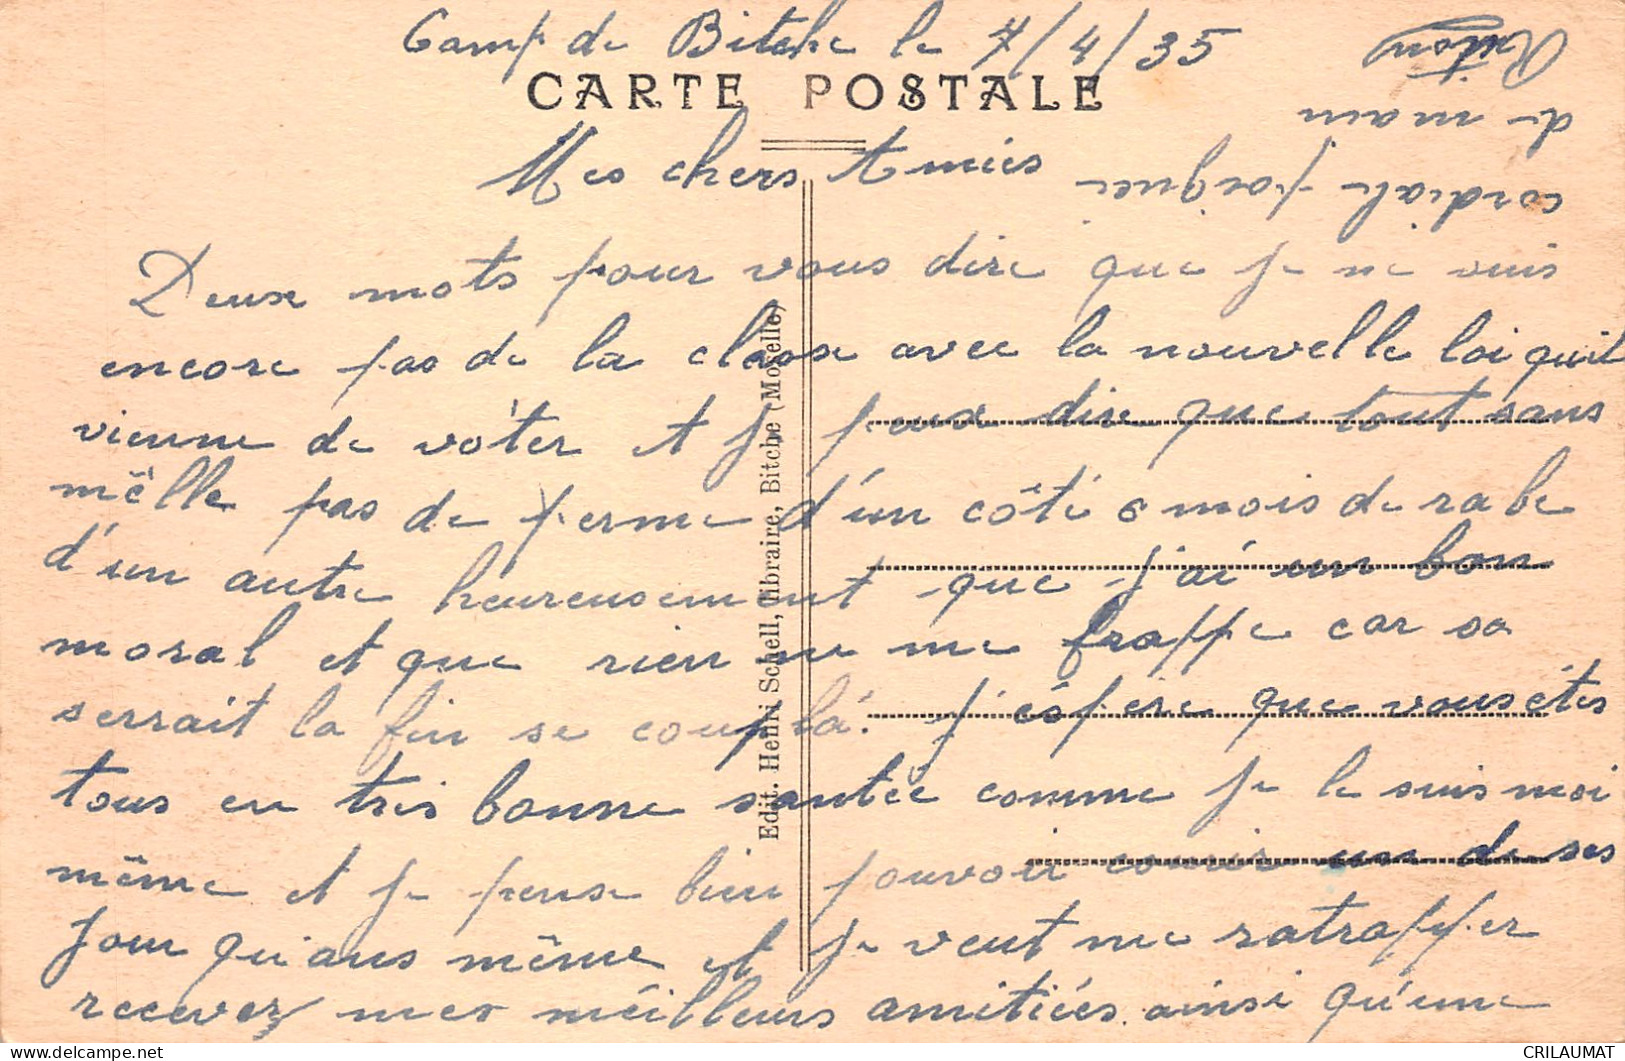 Camp de Bitche le 7/4/35
CARTE POSTALE
Mes chers Amies
Deux mots pour vous dire que je ne suis
encore pas de la classe avec la nouvelle loi qu'il
vienne de vôter et je peux dire que tout sans
mêlle pas de ferme d'un côté 6 mois de rabe
d'un autre heureusement que j'ai un bon
moral et que rien ne me frappe car sa
serrait la fin se coup là. J'éspère que vous étes
tous en très bonne santée comme je le suis moi
même et je pense bien pouvoir courir un de ses
jour qu'ans même et je veut me ratrapper
recevez mes méilleurs amitiées ainsi qu'une
cordiale poignei
de main
Edit. Henri Schell, libraire, Bitche (Moselle)
CRILAUMAT